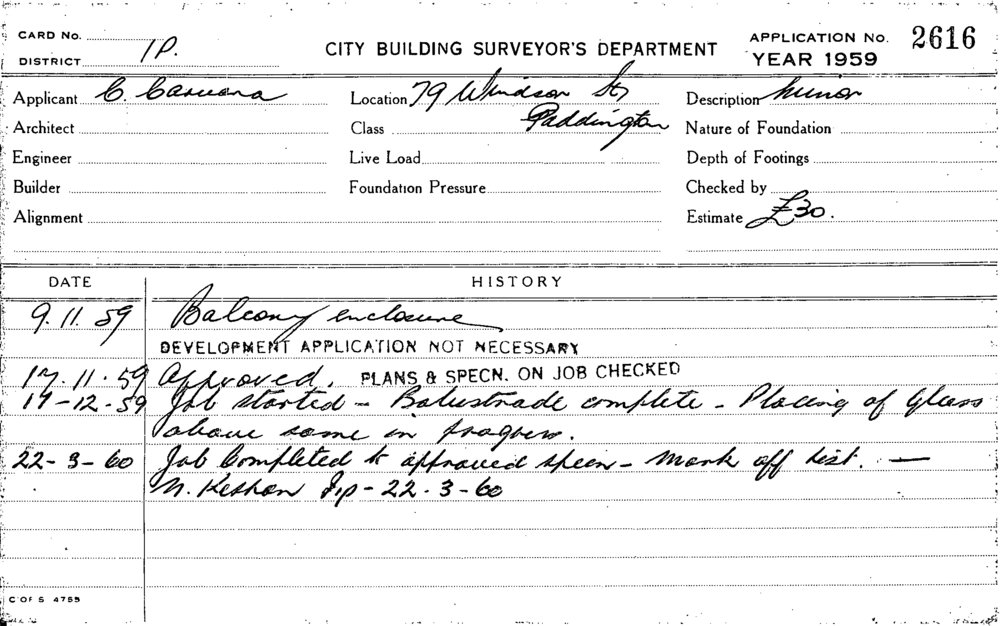 CARD No.
DISTRICT 1P.
CITY BUILDING SURVEYOR'S DEPARTMENT
APPLICATION No. 2616
YEAR 1959
Applicant C. Caruana
Location 79 Windsor St,
Paddington
Description Minor
Architect
Class
Nature of Foundation
Engineer
Live Load
Depth of Footings
Builder
Foundation Pressure
Checked by
Alignment
Estimate £30.
DATE
HISTORY
9.11.59 Balcony enclosure
DEVELOPMENT APPLICATION NOT NECESSARY
17.11.59 Approved. PLANS & SPECN. ON JOB CHECKED
17-12-59 Job started - Balustrade complete - Placing of Glass
above same in progress.
22-3-60 Job Completed to approved specn - Mark off list. —
22.3-60
C OF S 4755